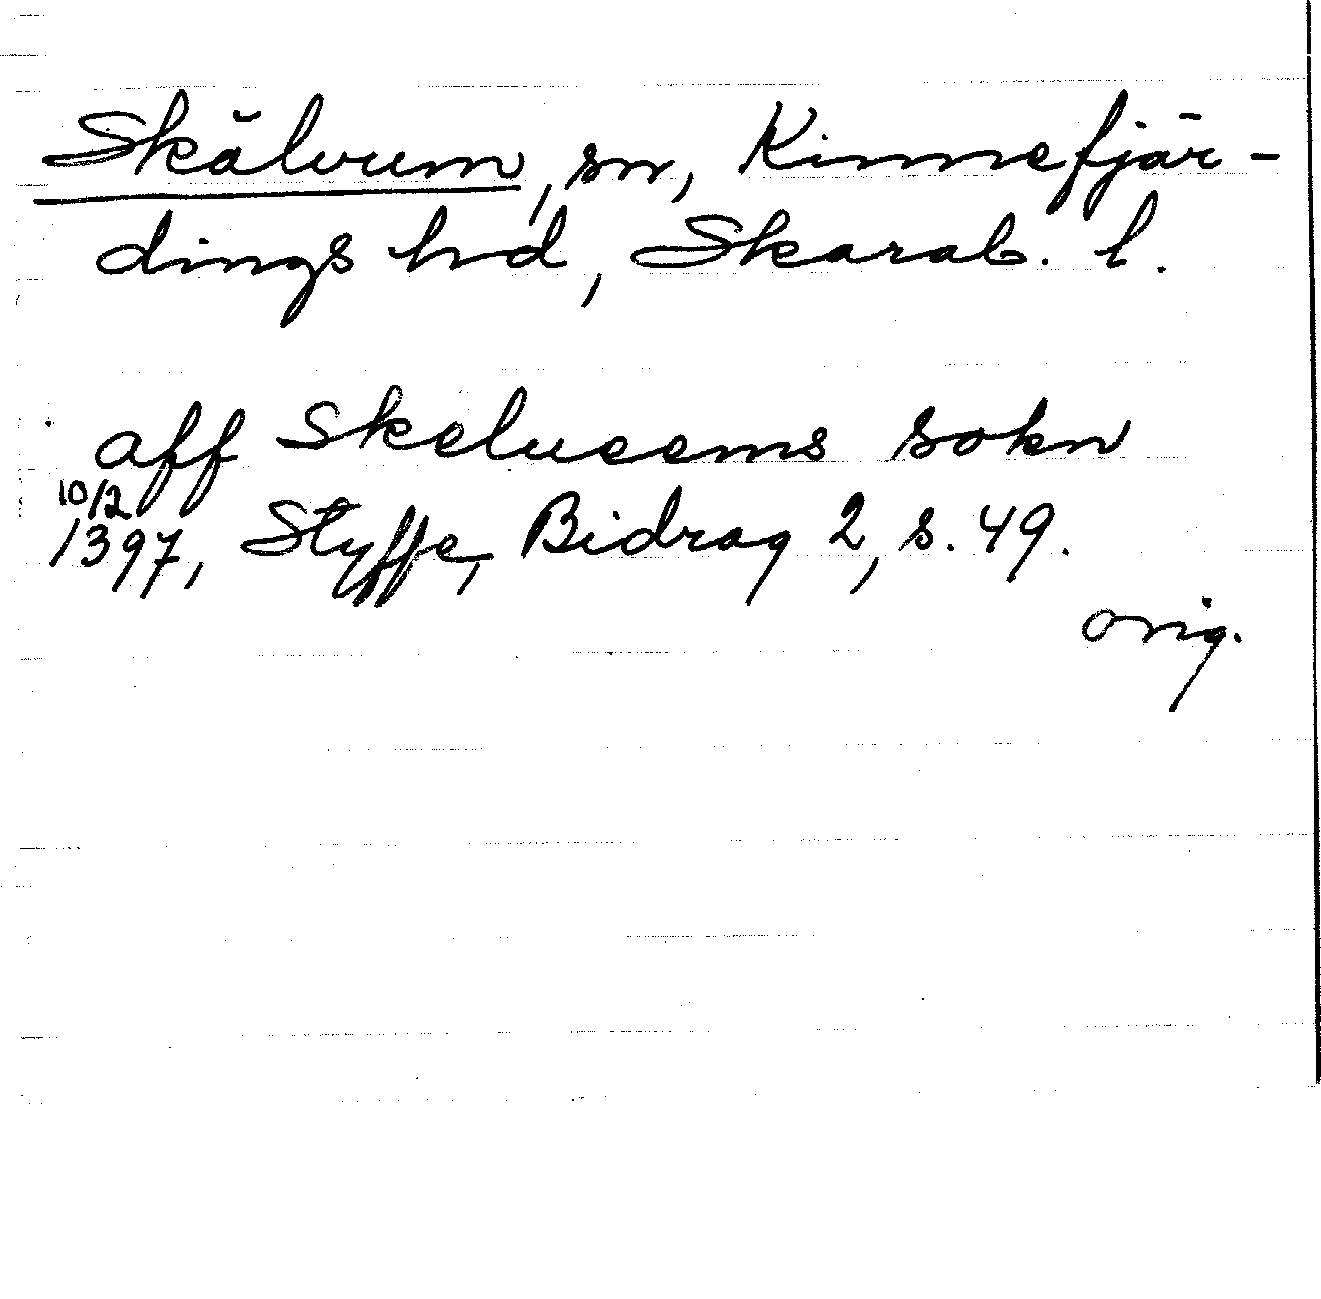 Skälvum, sn, Kinnefjär-
dings hd, Skarab. l.
aff Skelueems sokn
10/2
1397, Styffe, Bidrag 2, s. 49.
orig.